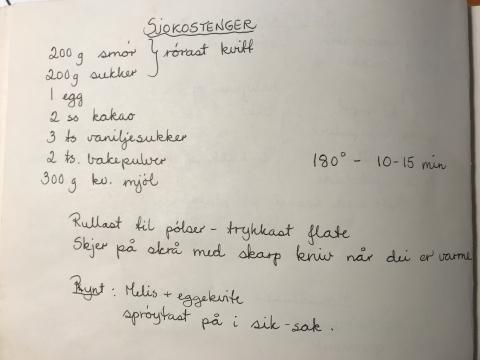 SJOKOSTENGER
200 g smör } rörast kvitt
200 g sukker
1 egg
2 ss kakao
3 ts vaniljesukker
2 ts. bakepulver
300 g kv. mjöl
180° - 10-15 min
Rullast til pölser - trykkast flate
Skjer på skrå med skarp kniv når dei er varme
Pynt : Melis + eggekvite
spröytast på i sik-sak.